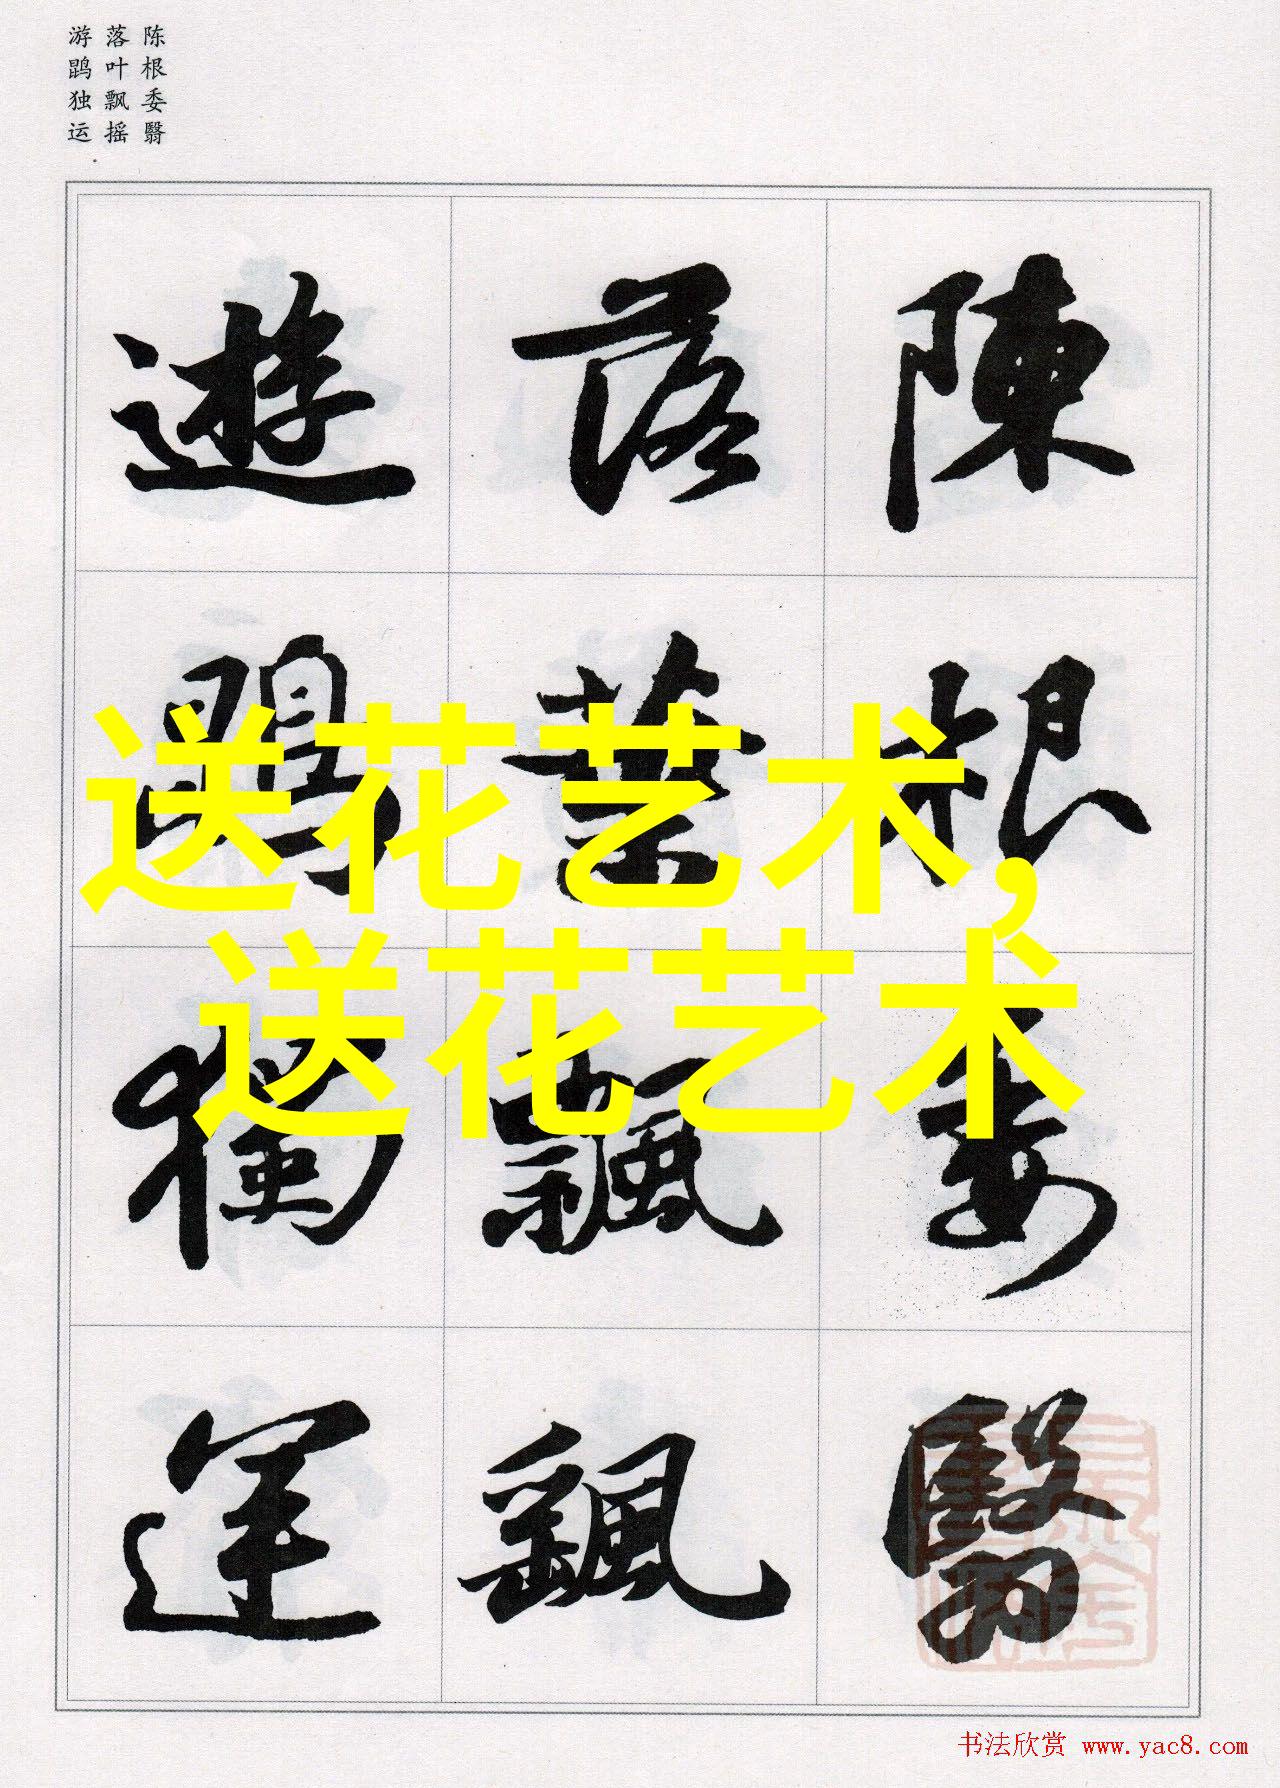 陈根委翳
落叶飘摇
游鹍独运
陳根委翳
落葉飄颻
遊鵾獨運
送花艺术，
送花艺术
书法欣赏 www.yac8.com